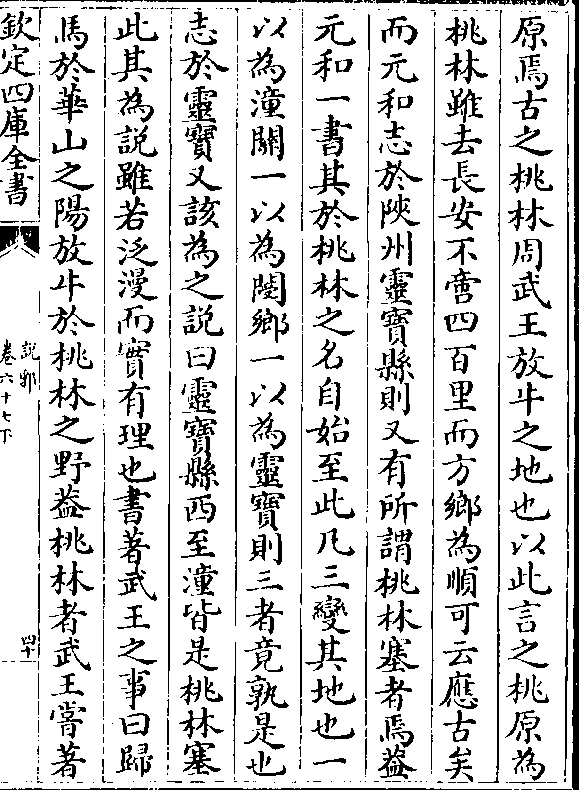 原焉古之桃林周武王放牛之地也以此言之桃原為
桃林雖去長安不啻四百里而方鄉為順可云應古矣
而元和志於陜州靈寶縣則又有所謂桃林塞者焉葢
元和一書其於桃林之名自始至此凡三變其地也一
以為潼關一以為閿鄉一以為靈寶則三者竟孰是也
志於靈寶又該為之說曰靈寶縣西至潼皆是桃林塞
此其為說雖若泛漫而實有理也書著武王之事曰歸
馬於華山之陽放牛於桃林之野葢桃林者武王嘗著
欽定四庫全書
說郛
卷六十七下
四十